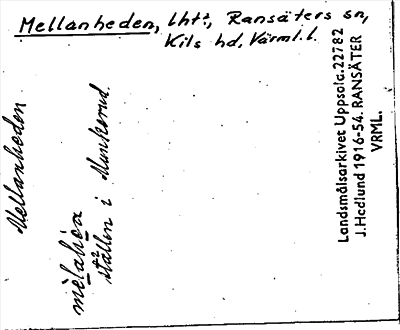 Mellanheden, lht., Ransäters sn,
Kils hd, Värml. l.
Mellanheden
mèlahéa
ställen i Munkerud.
Landsmålsarkivet Uppsala. 22782
J. Hedlund 1916-54. RANSÄTER
VRML.